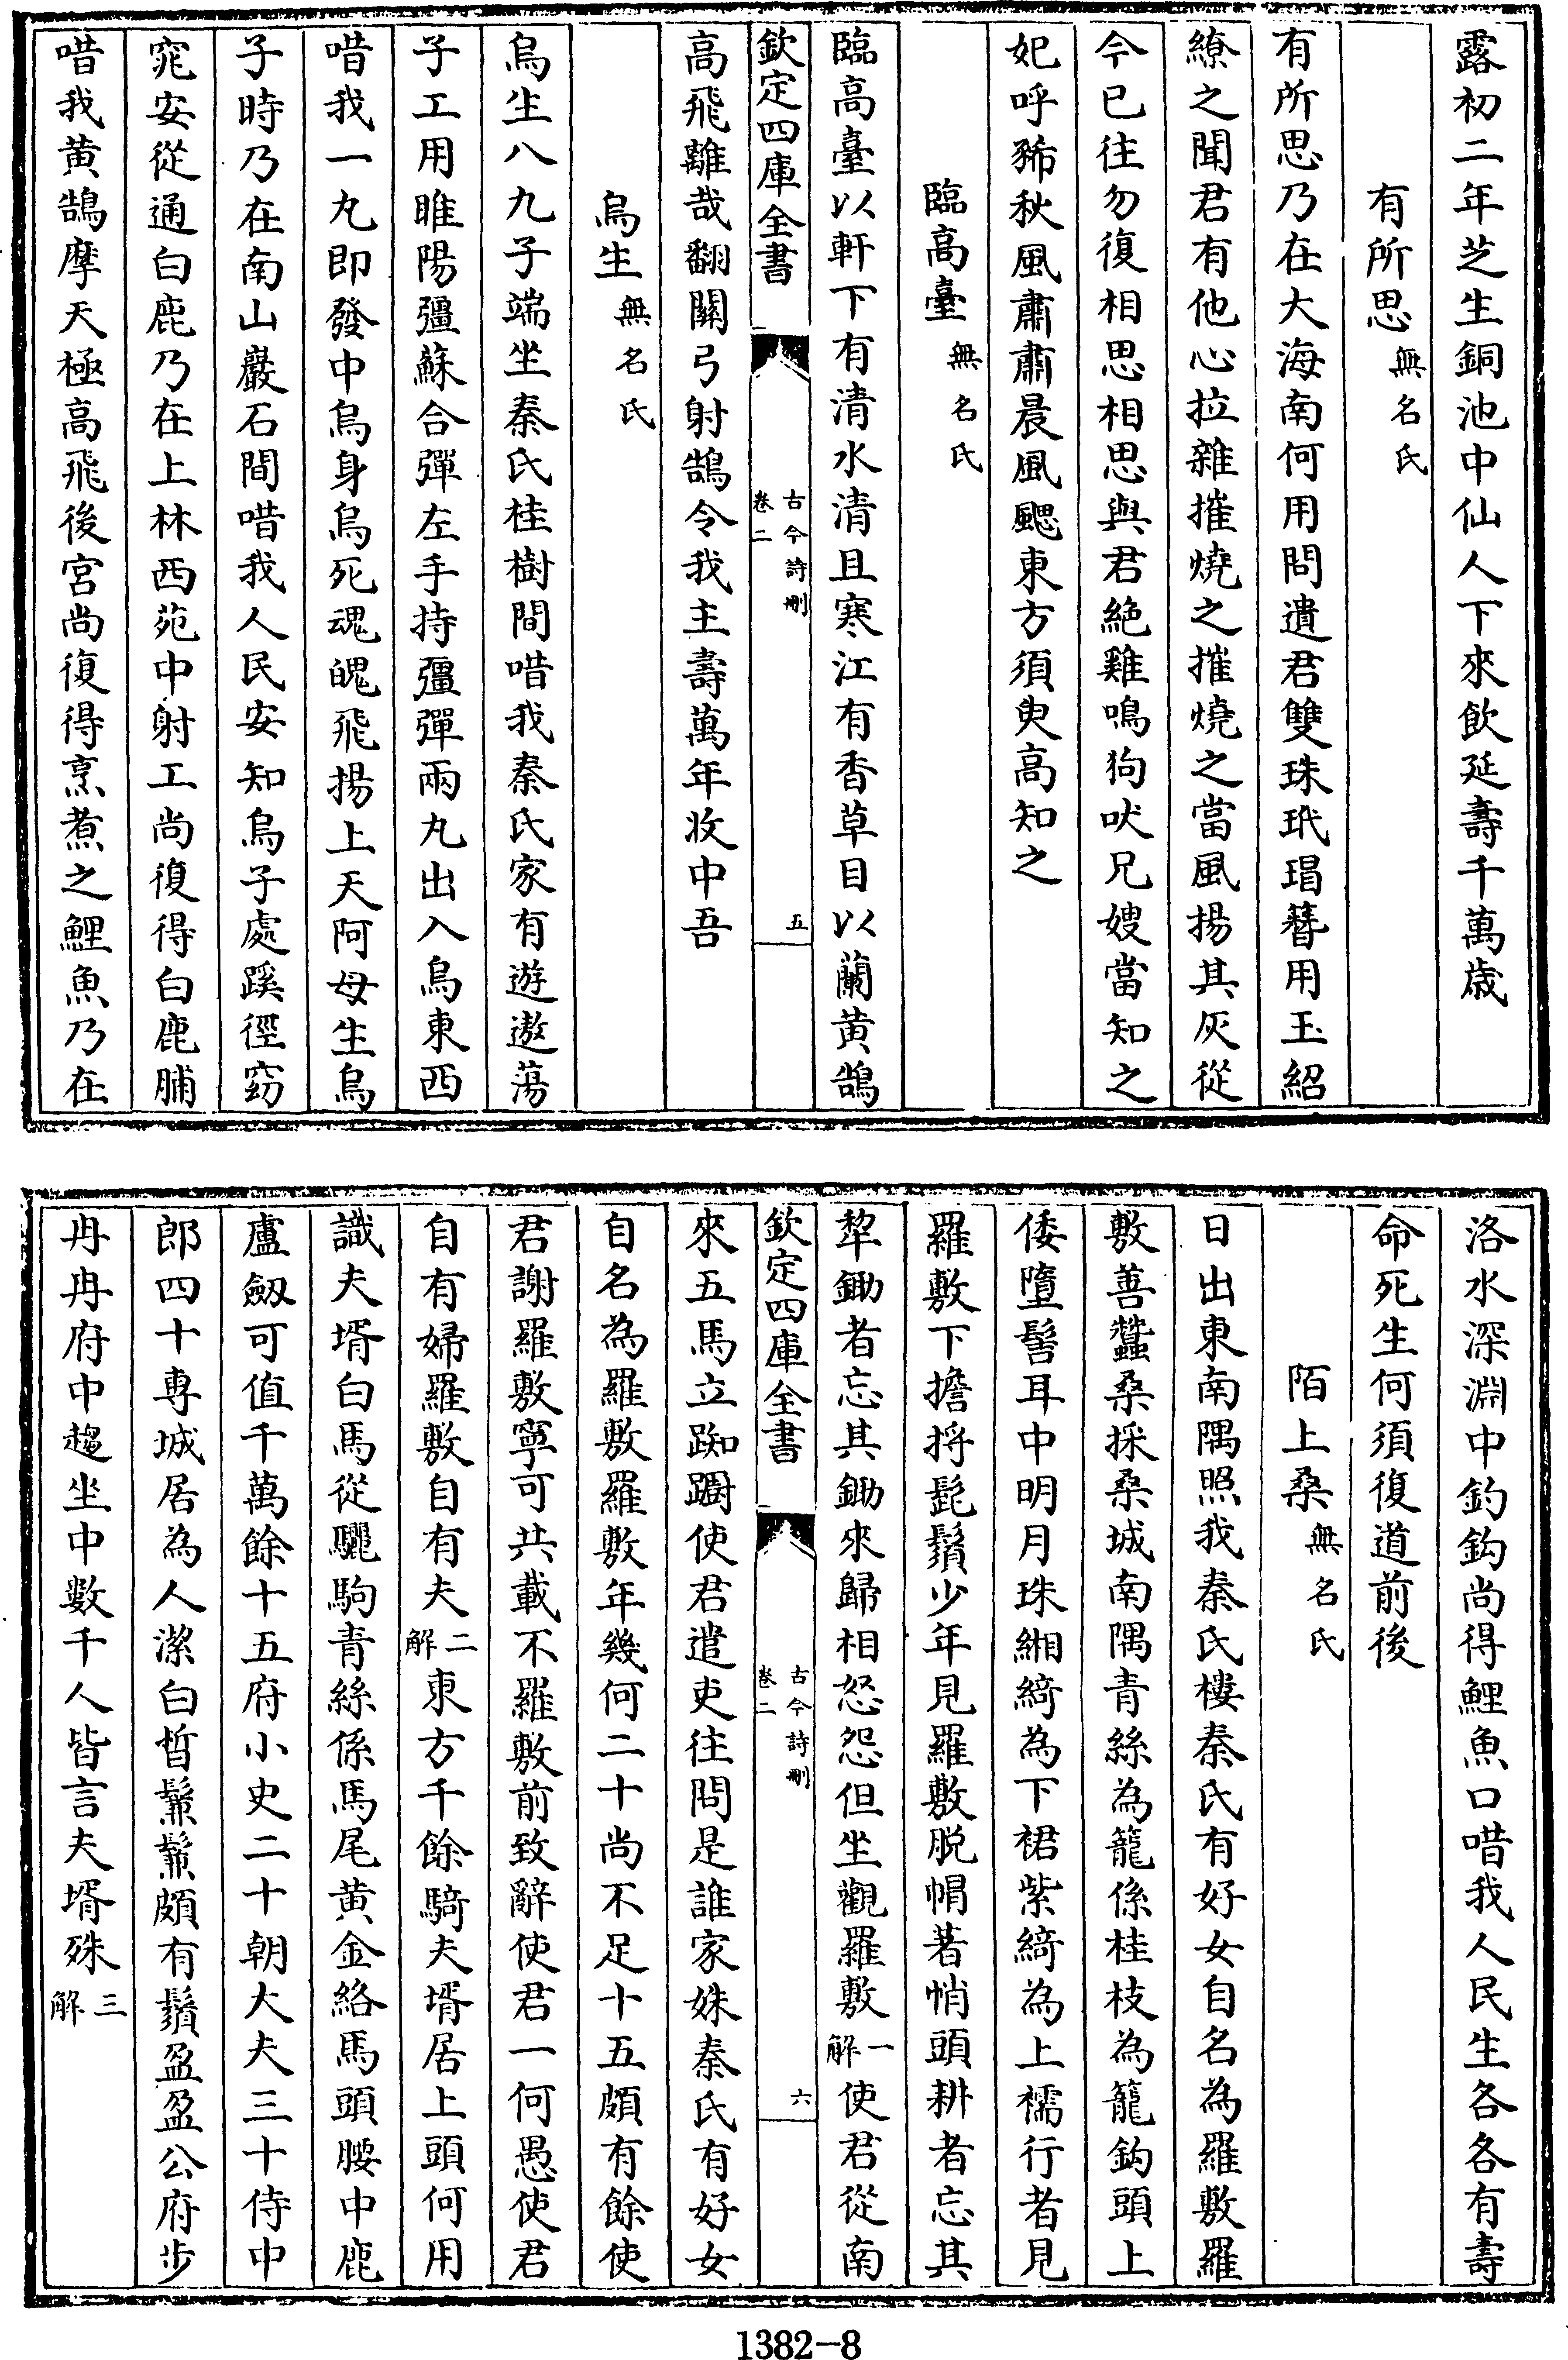 露初二年芝生銅池中仙人下來飲延壽千萬歲
有所思無名氏
有所思乃在大海南何用問遺君雙珠玳瑁簪用玉紹
繚之聞君有他心拉雜摧燒之摧燒之當風揚其灰從
今已往勿復相思相思與君絕雞鳴狗吠兄嫂當知之
妃呼豨秋風肅肅晨風颸東方須臾高知之
臨高臺無名氏
臨高臺以軒下有清水清且寒江有香草目以蘭黄鵠
欽定四庫全書 古今詩刪 卷二 五
高飛離哉翻關弓射鵠令我主壽萬年收中吾
烏生無名氏
烏生八九子端坐秦氏桂樹間唶我秦氏家有遊遨蕩
子工用睢陽彊蘇合彈左手持彊彈兩丸出入烏東西
唶我一丸即發中烏身烏死魂魄飛揚上天阿母生烏
子時乃在南山巖石間唶我人民安知烏子處蹊徑窈
窕安從通白鹿乃在上林西苑中射工尚復得白鹿脯
唶我黄鵠摩天極高飛後宮尚復得烹煮之鯉魚乃在
洛水深淵中釣鈎尚得鯉魚口唶我人民生各各有壽
命死生何須復道前後
陌上桑無名氏
日出東南隅照我秦氏樓秦氏有好女自名為羅敷羅
敷善蠶桑採桑城南隅青絲為籠係桂枝為籠鈎頭上
倭墮髻耳中明月珠緗綺為下裙紫綺為上襦行者見
羅敷下擔捋髭鬚少年見羅敷脱帽著帩頭耕者忘其
犂鋤者忘其鋤來歸相怒怨但坐觀羅敷一解使君從南
欽定四庫全書 古今詩刪 卷二 六
來五馬立踟躕使君遣吏往問是誰家姝秦氏有好女
自名為羅敷羅敷年幾何二十尚不足十五頗有餘使
君謝羅敷寧可共載不羅敷前致辭使君一何愚使君
自有婦羅敷自有夫二解東方千餘騎夫壻居上頭何用
識夫壻白馬從驪駒青絲係馬尾黄金絡馬頭腰中鹿
盧劔可值千萬餘十五府小史二十朝大夫三十侍中
郎四十專城居為人潔白晳鬑鬑頗有鬚盈盈公府步
冉冉府中趨坐中數千人皆言夫壻殊三解
1382-8